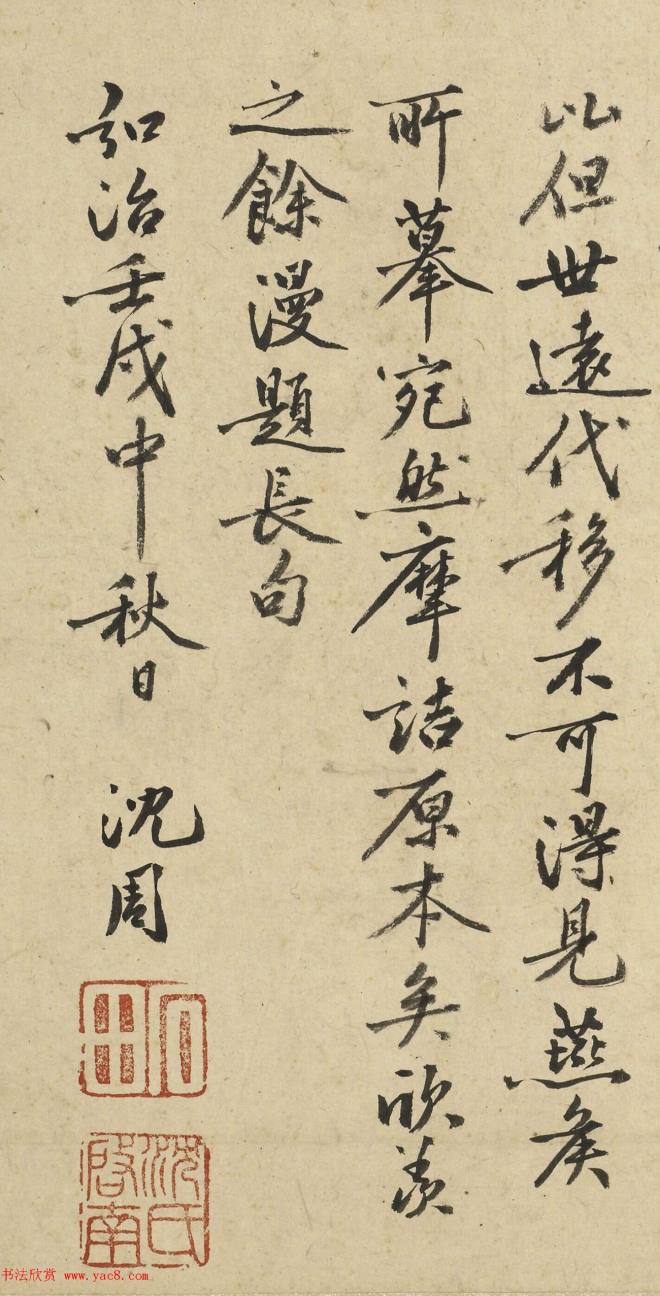 以但世遠代移不可得見燕矦
所摹宛然摩詰原本矣欣羨
之餘漫題長句
弘治壬戌中秋日 沈周
石田
沈氏啓南
书法欣赏 www.yac8.com